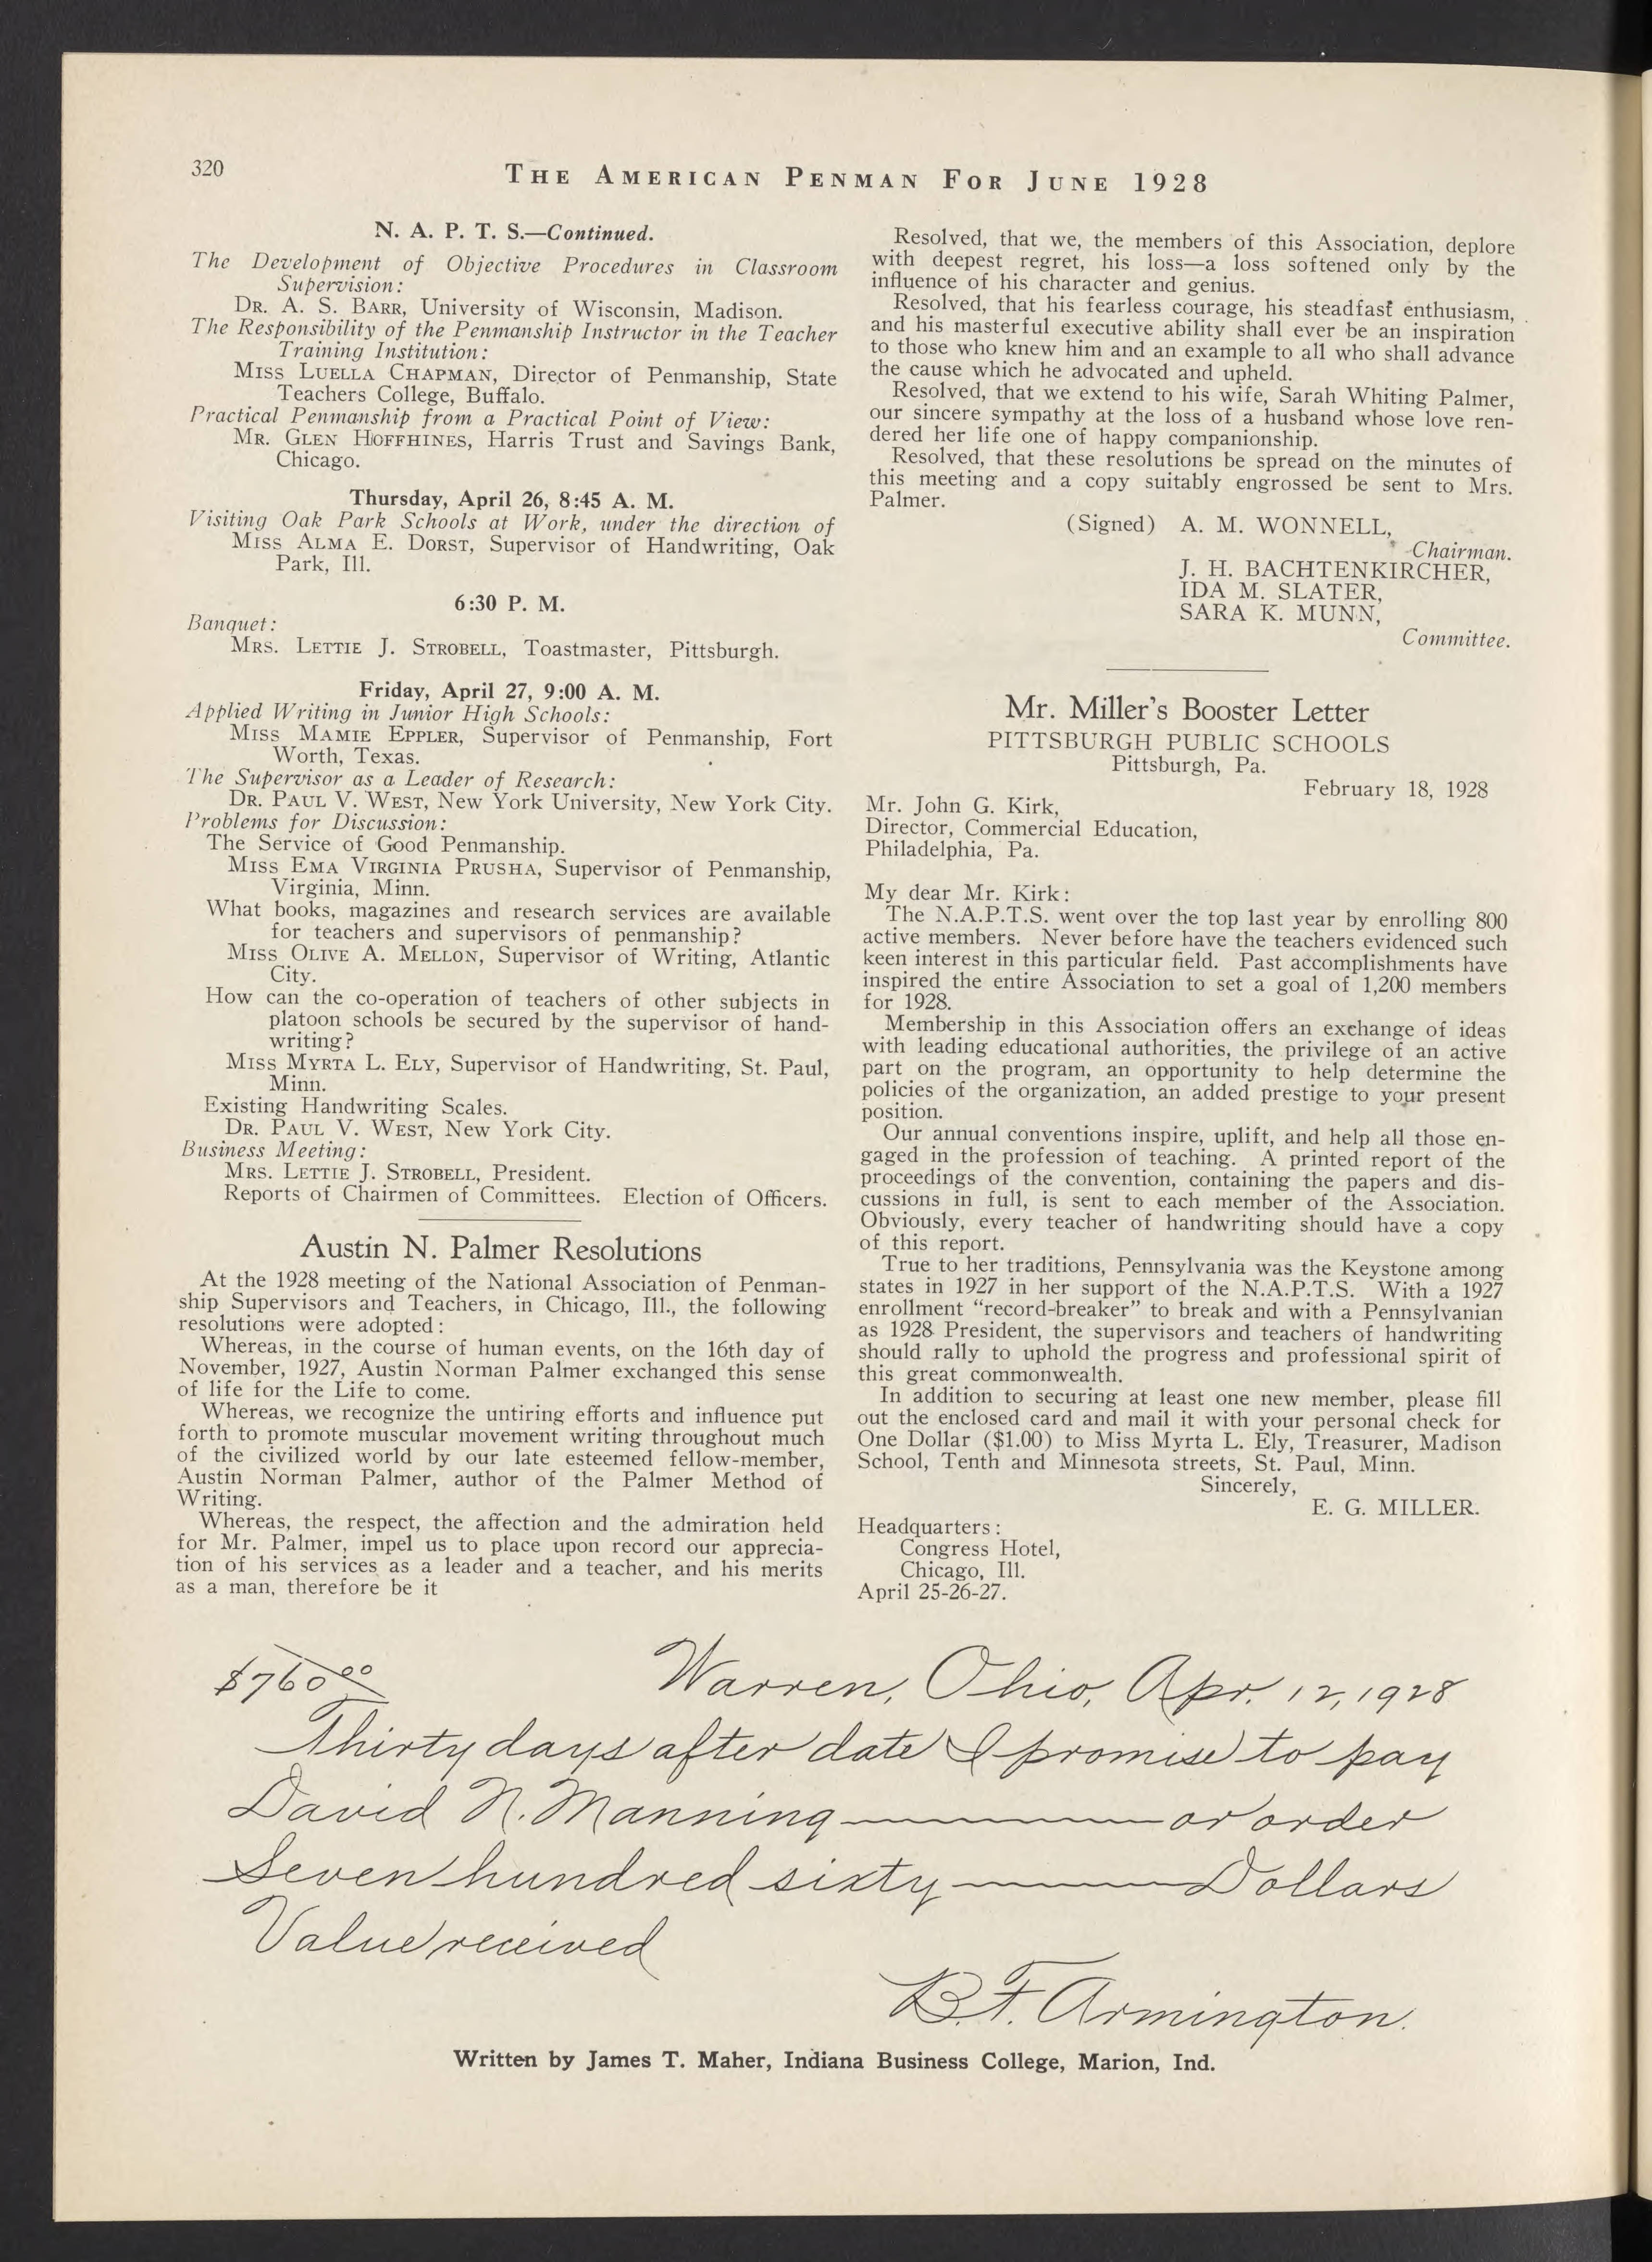 320
THE AMERICAN PENMAN FOR JUNE 1928
N. A. P. T. S.—Continued.
The Development of Objective Procedures in Classroom
Supervision:
DR. A. S. BARR, University of Wisconsin, Madison.
The Responsibility of the Penmanship Instructor in the Teacher
Training Institution:
MISS LUELLA CHAPMAN, Director of Penmanship, State
Teachers College, Buffalo.
Practical Penmanship from a Practical Point of View:
MR. GLEN HOFFHINES, Harris Trust and Savings Bank,
Chicago.
Thursday, April 26, 8:45 A. M.
Visiting Oak Park Schools at Work, under the direction of
MISS ALMA E. DORST, Supervisor of Handwriting, Oak
Park, Ill.
6:30 P. M.
Banquet:
MRS. LETTIE J. STROBELL, Toastmaster, Pittsburgh.
Friday, April 27, 9:00 A. M.
Applied Writing in Junior High Schools:
MISS MAMIE EPPLER, Supervisor of Penmanship, Fort
Worth, Texas.
The Supervisor as a Leader of Research:
DR. PAUL V. WEST, New York University, New York City.
Problems for Discussion:
The Service of Good Penmanship.
MISS EMA VIRGINIA PRUSHA, Supervisor of Penmanship,
Virginia, Minn.
What books, magazines and research services are available
for teachers and supervisors of penmanship?
MISS OLIVE A. MELLON, Supervisor of Writing, Atlantic
City.
How can the co-operation of teachers of other subjects in
platoon schools be secured by the supervisor of hand-
writing?
MISS MYRTA L. ELY, Supervisor of Handwriting, St. Paul,
Minn.
Existing Handwriting Scales.
DR. PAUL V. WEST, New York City.
Business Meeting:
MRS. LETTIE J. STROBELL, President.
Reports of Chairmen of Committees. Election of Officers.
Austin N. Palmer Resolutions
At the 1928 meeting of the National Association of Penman-
ship Supervisors and Teachers, in Chicago, Ill., the following
resolutions were adopted:
Whereas, in the course of human events, on the 16th day of
November, 1927, Austin Norman Palmer exchanged this sense
of life for the Life to come.
Whereas, we recognize the untiring efforts and influence put
forth to promote muscular movement writing throughout much
of the civilized world by our late esteemed fellow-member,
Austin Norman Palmer, author of the Palmer Method of
Writing.
Whereas, the respect, the affection and the admiration held
for Mr. Palmer, impel us to place upon record our apprecia-
tion of his services as a leader and a teacher, and his merits
as a man, therefore be it
Resolved, that we, the members of this Association, deplore
with deepest regret, his loss—a loss softened only by the
influence of his character and genius.
Resolved, that his fearless courage, his steadfast enthusiasm,
and his masterful executive ability shall ever be an inspiration
to those who knew him and an example to all who shall advance
the cause which he advocated and upheld.
Resolved, that we extend to his wife, Sarah Whiting Palmer,
our sincere sympathy at the loss of a husband whose love ren-
dered her life one of happy companionship.
Resolved, that these resolutions be spread on the minutes of
this meeting and a copy suitably engrossed be sent to Mrs.
Palmer.
(Signed) A. M. WONNELL,
Chairman.
J. H. BACHTENKIRCHER,
IDA M. SLATER,
SARA K. MUNN,
Committee.
Mr. Miller's Booster Letter
PITTSBURGH PUBLIC SCHOOLS
Pittsburgh, Pa.
February 18, 1928
Mr. John G. Kirk,
Director, Commercial Education,
Philadelphia, Pa.
My dear Mr. Kirk:
The N.A.P.T.S. went over the top last year by enrolling 800
active members. Never before have the teachers evidenced such
keen interest in this particular field. Past accomplishments have
inspired the entire Association to set a goal of 1,200 members
for 1928.
Membership in this Association offers an exchange of ideas
with leading educational authorities, the privilege of an active
part on the program, an opportunity to help determine the
policies of the organization, an added prestige to your present
position.
Our annual conventions inspire, uplift, and help all those en-
gaged in the profession of teaching. A printed report of the
proceedings of the convention, containing the papers and dis-
cussions in full, is sent to each member of the Association.
Obviously, every teacher of handwriting should have a copy
of this report.
True to her traditions, Pennsylvania was the Keystone among
states in 1927 in her support of the N.A.P.T.S. With a 1927
enrollment "record-breaker" to break and with a Pennsylvanian
as 1928 President, the supervisors and teachers of handwriting
should rally to uphold the progress and professional spirit of
this great commonwealth.
In addition to securing at least one new member, please fill
out the enclosed card and mail it with your personal check for
One Dollar ($1.00) to Miss Myrta L. Ely, Treasurer, Madison
School, Tenth and Minnesota streets, St. Paul, Minn.
Sincerely,
E. G. MILLER.
Headquarters:
Congress Hotel,
Chicago, Ill.
April 25-26-27.
$760 00 Warren, Ohio, Apr. 12, 1928
Thirty days after date I promise to pay
David N. Manning or order
Seven hundred sixty Dollars
Value received
B.F. Armington.
Written by James T. Maher, Indiana Business College, Marion, Ind.